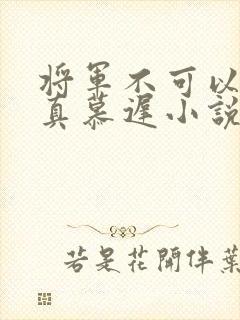 将军不可以
真慕遲小説
若是花開伴葉